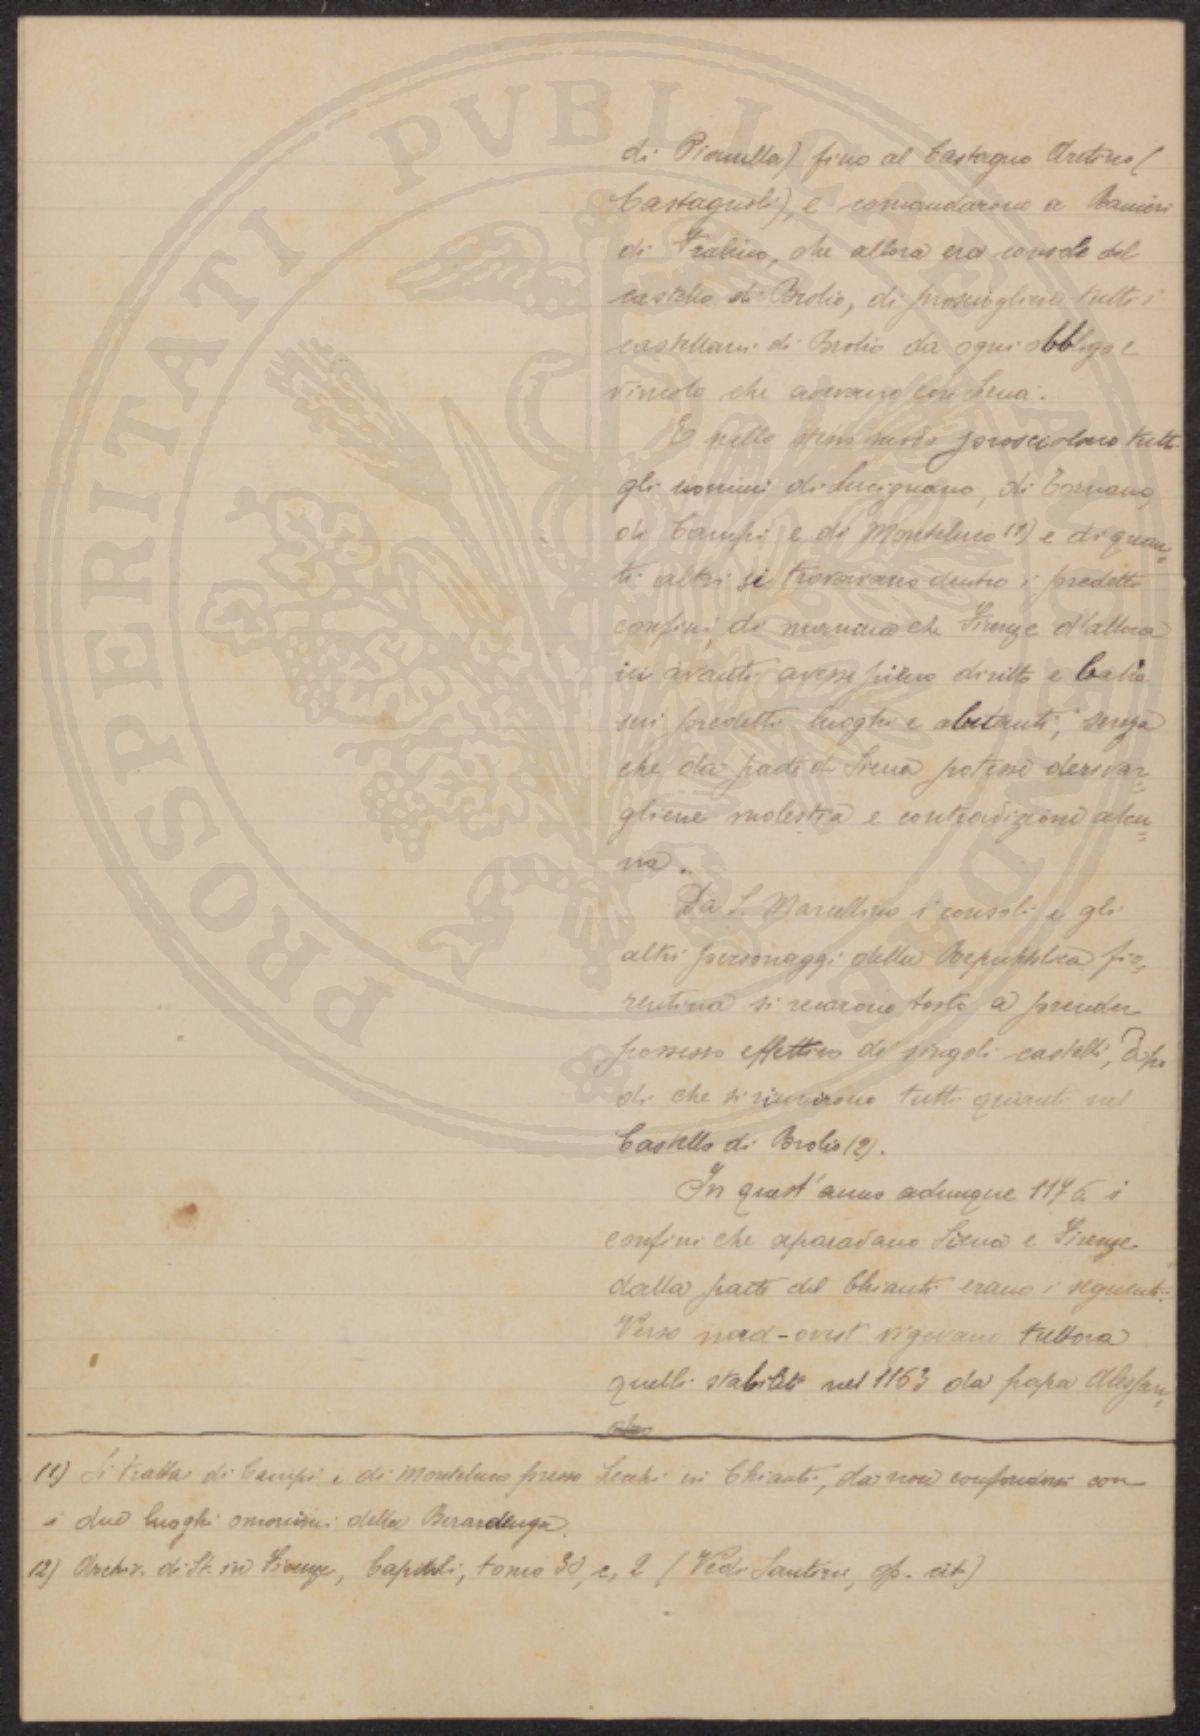 di Pianella) fino al Castagno Aretino (
Castagnoli), e comandarono a Ranieri
di Fralino, che allora era console del
castello di Brolio, di prosciogliere tutti i
castellani di Brolio da ogni obbligo e
vincolo che avevano con Siena.
E nello stesso modo prosciolono tutti
gli uomini di Lucignano, di Tornano,
di Campi e di Monteluco (1) e di quan=
ti altri si trovavano dentro i predetti
confini, di maniera che Firenze d'allora
in avanti avesse pieno diritto e balia
sui predetti luoghi e abitanti, senza
che da parte di Siena potesse derivar=
gliene molestia e contradizione alcu=
na.
Da S. Marcellino i consoli e gli
altri personaggi della Repubblica fio=
rentina si recarono tosto a prender
possesso effettivo de' singoli castelli, dopo
di che si riunirono tutti quanti nel
Castello di Brolio (2).
In quest'anno adunque 1176 i
confini che separavano Siena e Firenze
dalla parte del Chianti erano i seguenti:
Verso nord-ovest vigevano tuttora
quelli stabiliti nel 1163 da papa Alessan=
(1) Si tratta di Campi e di Monteluco presso Lecchi in Chianti, da non confondersi con
i due luoghi omonimi della Berardenga.
(2) Archiv. di St. in Firenze, Capitoli, tomo 30, c. 2 (Vedi Santini, op. cit.)
PROSPERITATI PVBLICAE